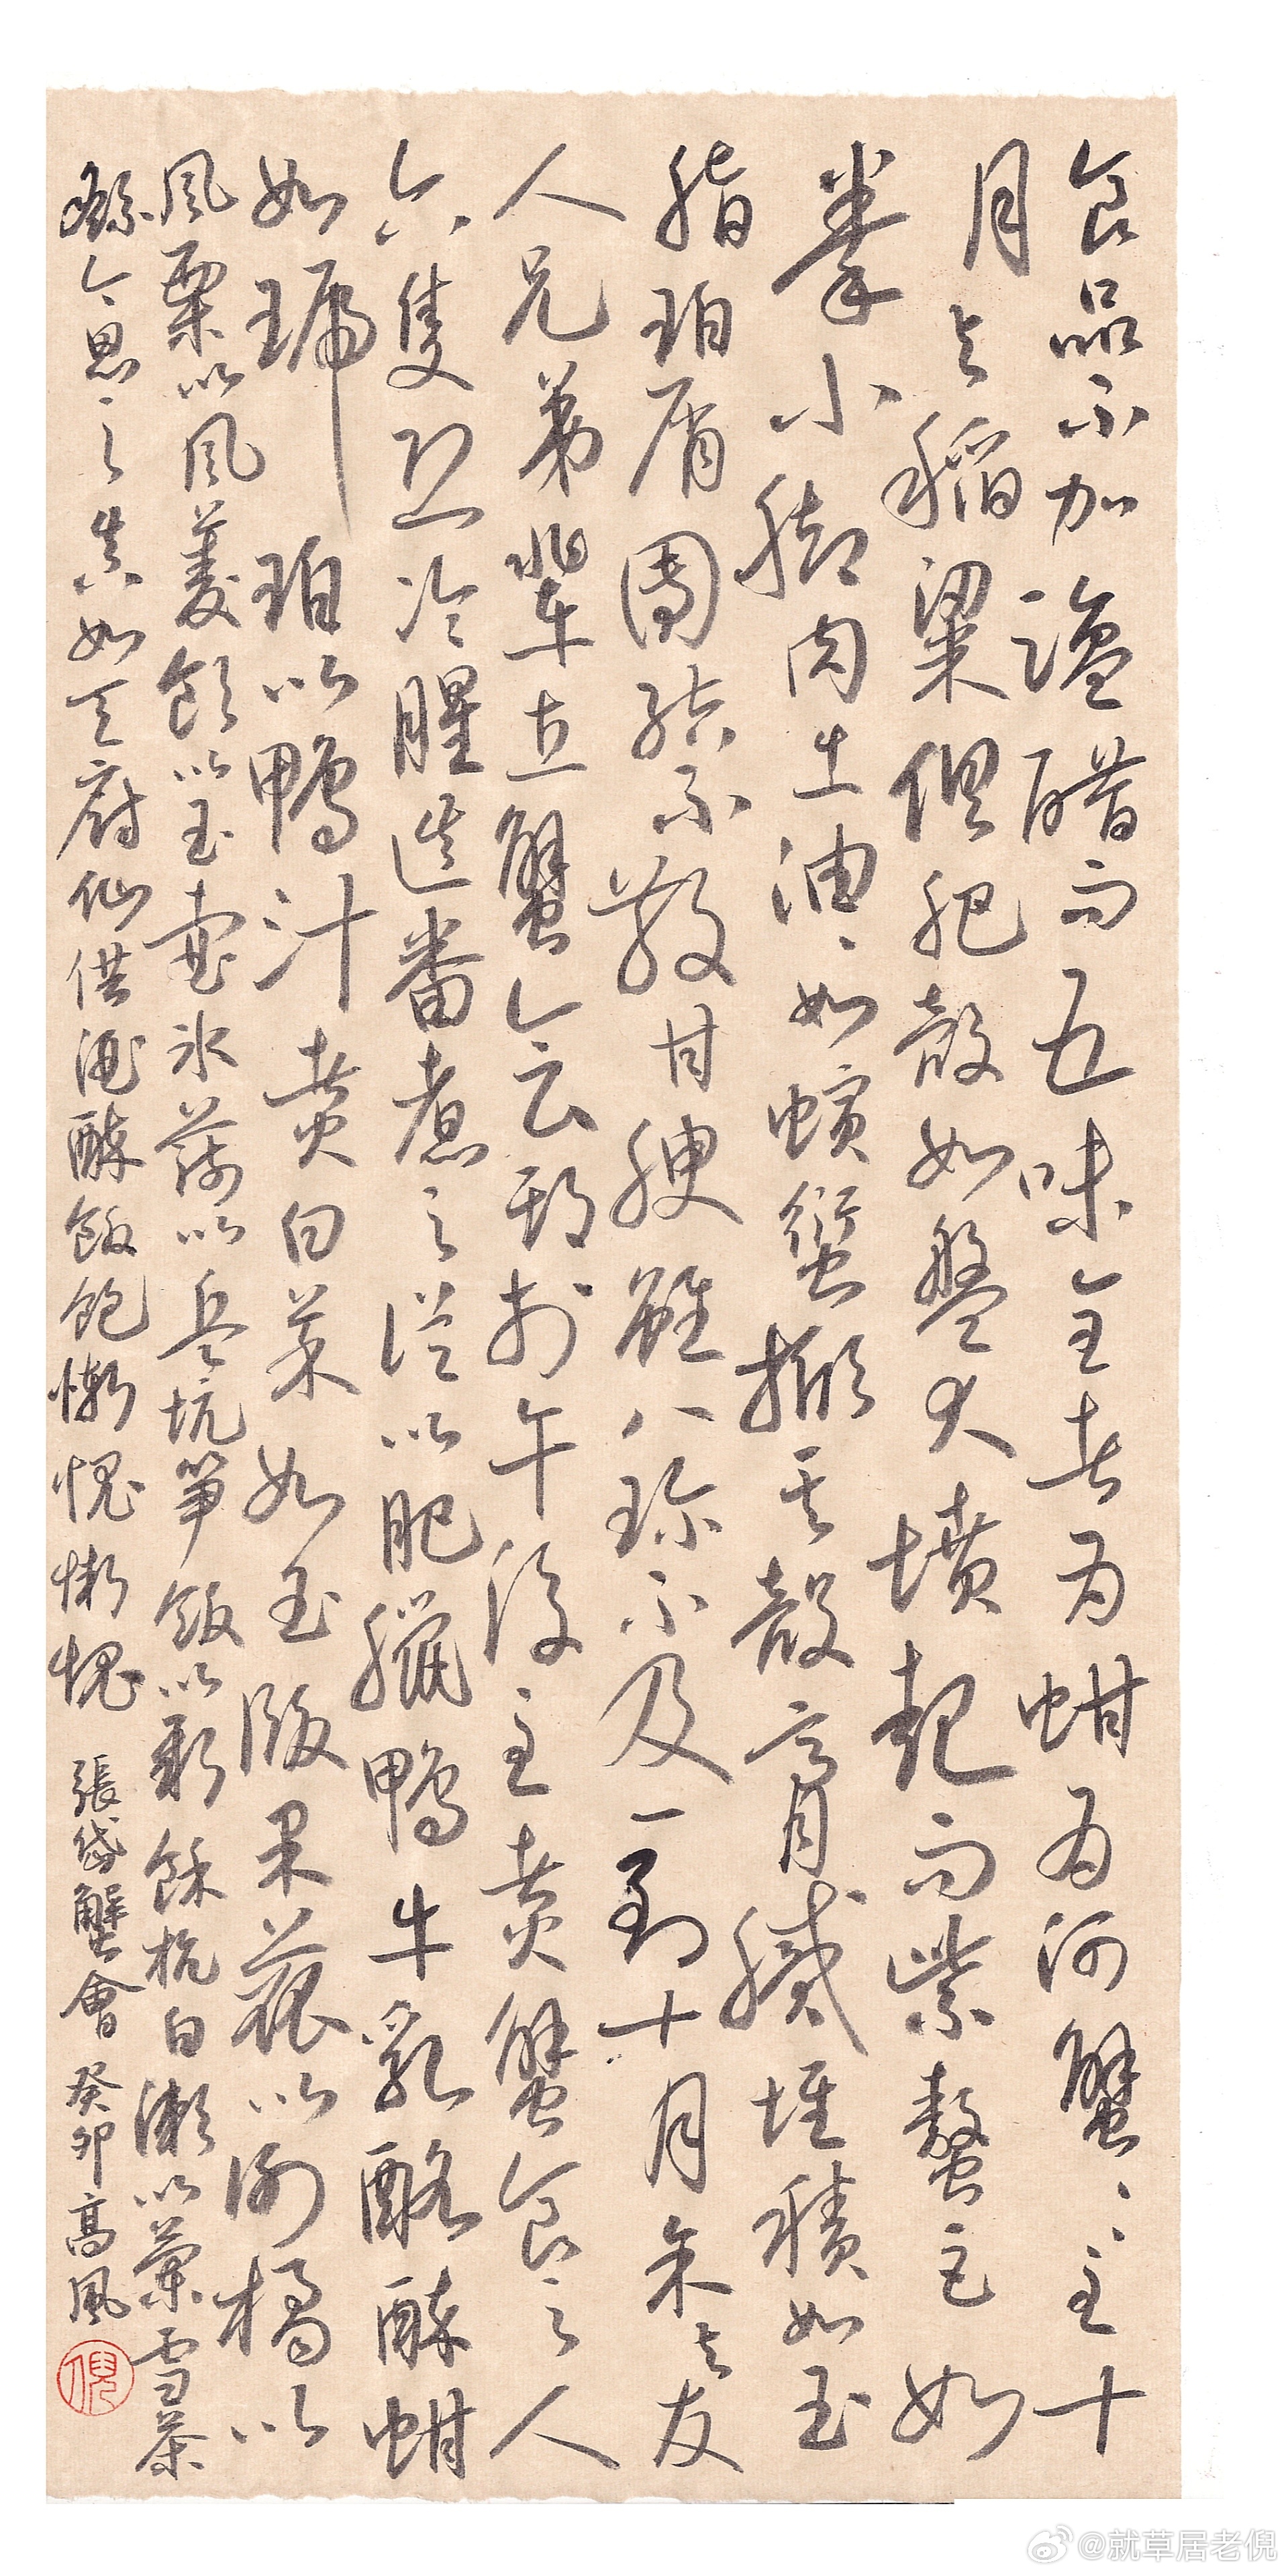 食品不加鹽醋而五味全者为蚶为河蟹蟹至十
月与稻粱俱肥殼如盤大墳起而紫螯巨如
拳小脚肉出油油如螾蜒掀其殼膏膩堆積如玉
脂珀屑團結不散甘腴雖八珍不及一到十月余与友
人兄弟輩立蟹會期於午後至煮蟹食之人
六隻恐冷腥迭番煮之從以肥臘鴨牛乳酪醉蚶
如琥珀以鴨汁煮白菜如玉版果蓏以謝橘以
風栗以風菱飲以玉壺冰蔬以兵坑筍飯以新餘杭白漱以蘭雪茶
繇今思之真如天厨仙供酒醉飯飽慚愧慚愧 張岱蟹會 癸卯高風
倪
@就草居老倪